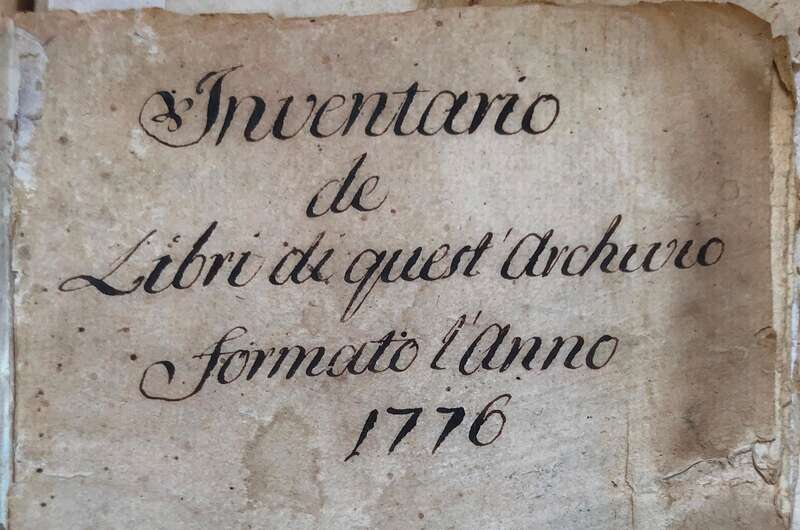 Inventario
de
Libri di quest'Archivio
formato l'Anno
1776